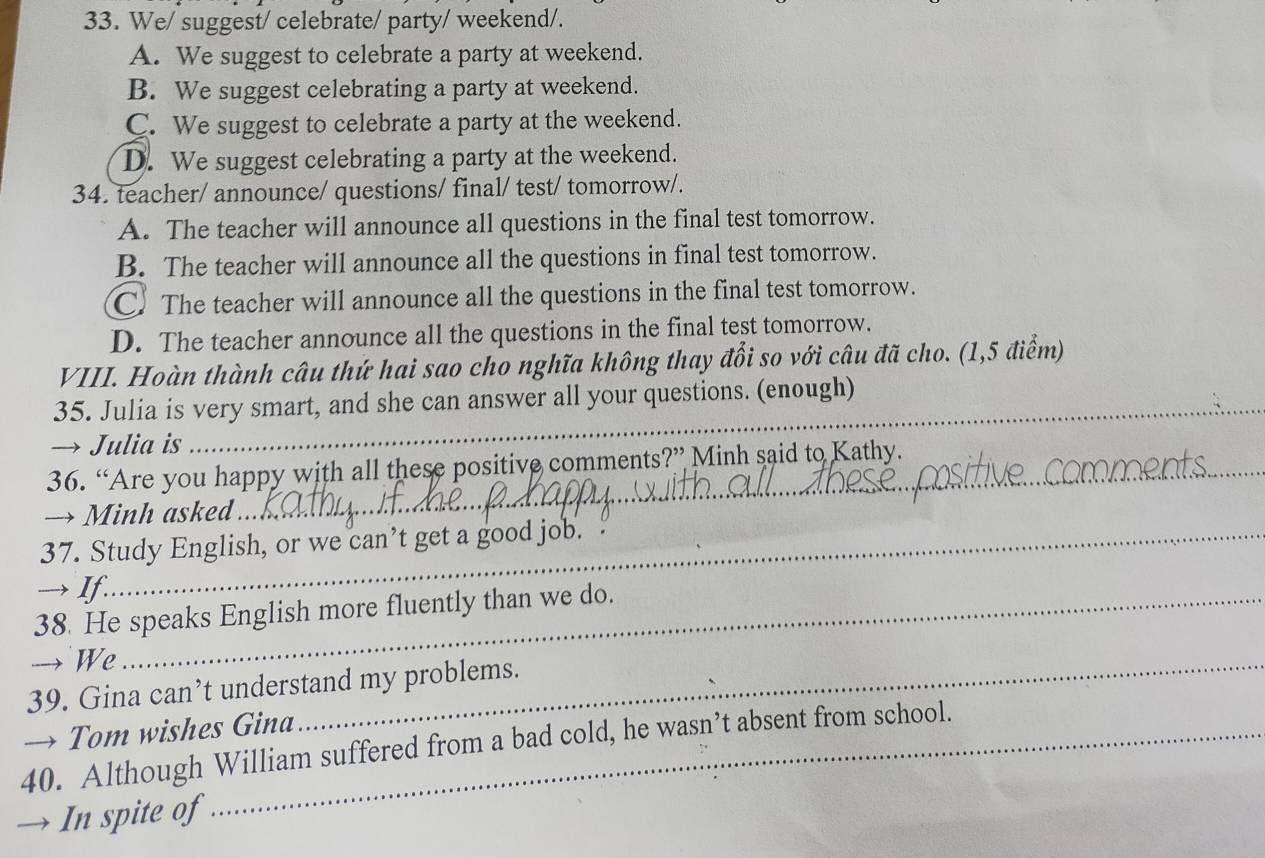 33. We/ suggest/ celebrate/ party/ weekend/.
A. We suggest to celebrate a party at weekend.
B. We suggest celebrating a party at weekend.
C. We suggest to celebrate a party at the weekend.
D. We suggest celebrating a party at the weekend.
34. teacher/ announce/ questions/ final/ test/ tomorrow/.
A. The teacher will announce all questions in the final test tomorrow.
B. The teacher will announce all the questions in final test tomorrow.
C. The teacher will announce all the questions in the final test tomorrow.
D. The teacher announce all the questions in the final test tomorrow.
VIII. Hoàn thành câu thứ hai sao cho nghĩa không thay đổi so với câu đã cho. (1,5 điểm)
35. Julia is very smart, and she can answer all your questions. (enough)
→ Julia is
36. “Are you happy with all these positive comments?” Minh said to Kathy.
→ Minh asked Kathy if he happy with all these positive comments
37. Study English, or we can’t get a good job.
→ If
38. He speaks English more fluently than we do.
→ We
39. Gina can’t understand my problems.
→ Tom wishes Gina
40. Although William suffered from a bad cold, he wasn’t absent from school.
→ In spite of